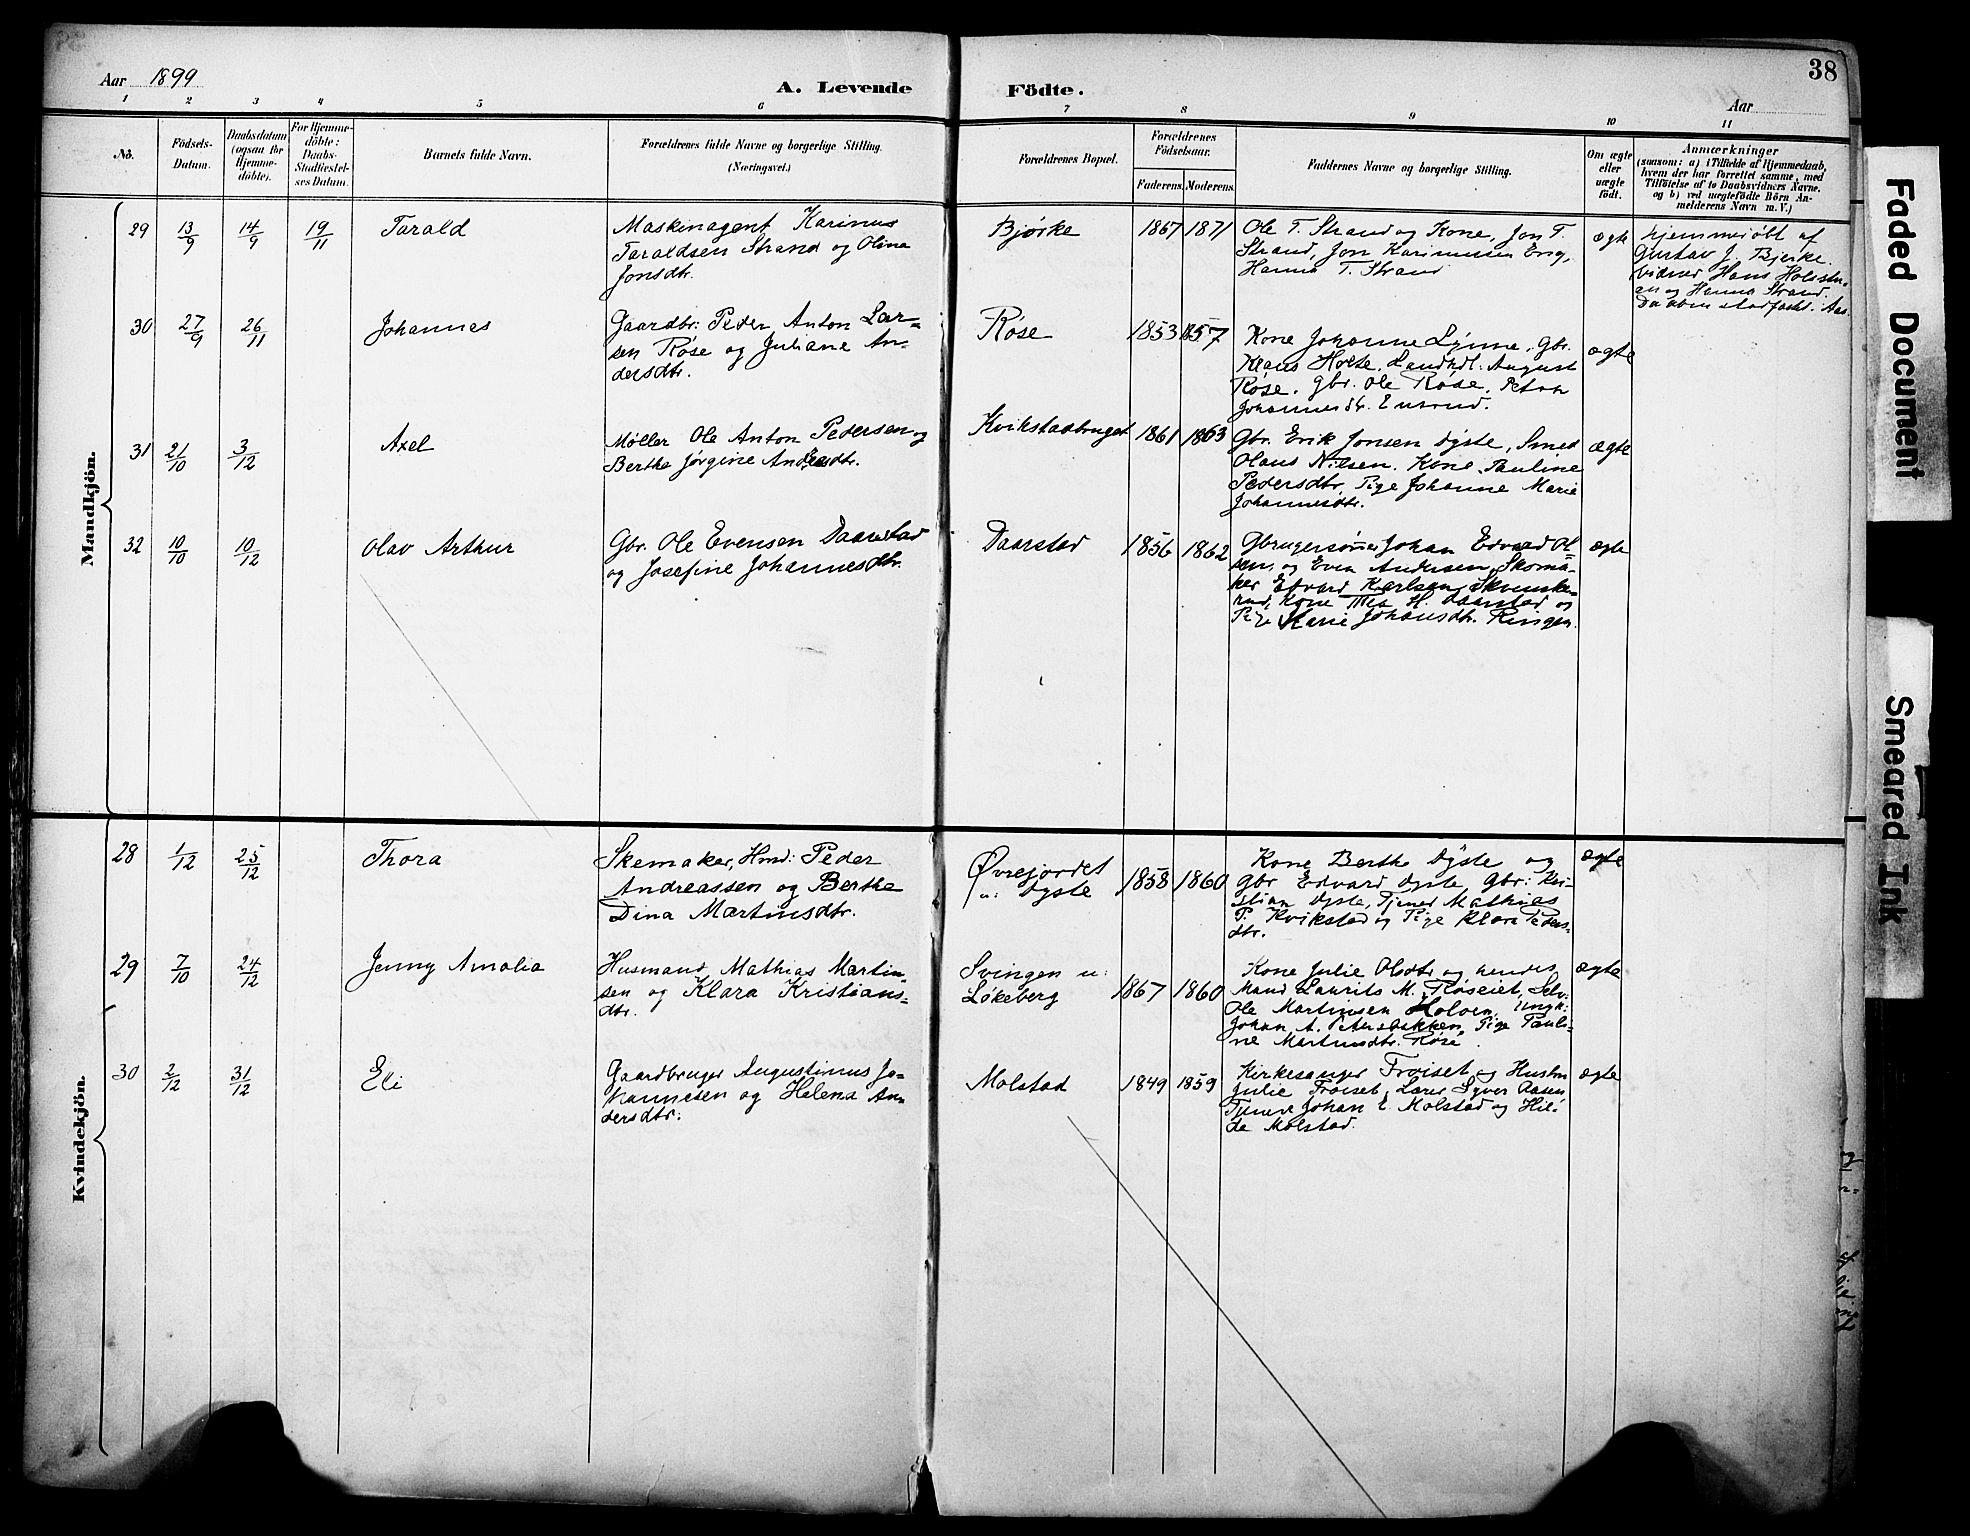 38
Aar 1899
A. Levende Födte.
Aar
1 2 3 4 5 6 7 8 9 10 11
No.
Födsels-
Datum.
Daabsdatum
(ogsaa for
Hjemme-
döbte).
For Hjemme-
döbte:
Daabs-
Stadfæstel-
ses Datum.
Barnets fulde Navn.
Forældrenes fulde Navne og borgerlige Stilling.
(Næringsvei.)
Forældrenes Bopæl.
Forældrenes
Födselsaar.
Faderens. Moderens.
Faddernes Navne og borgerlige Stilling.
Om ægte
eller
uægte
födt.
Anmærkninger
(saasom: a) i Tilfælde af Hjemmedaab,
hvem der har forrettet samme, med
Tilföielse af to Daabsvidners Navne.
og b) ved uægtefödte Börn An-
melderens Navn m. V.)
Mandkjön.
29 13/9 14/9 19/11 Tarald
Maskinagent Karinus
Taraldsen Strand og Olina
Jonsdtr.
Bjørke 1867 1871
Ole T. Strand og Kone, Jon T.
Strand, Jon Karinussen Eng,
Hanna T. Strand
ægte
Hjemmedøbt af
Gustav J. Bjerke.
Vidner Hans Holsten
og Hanna Strand.
30 27/9 26/11 Johannes
Gaardbr: Peder Anton Lar=
sen Røse og Juliane An-
dersdtr.
Røse 1853 1857
Kone Johanne Lynne, Gbr.
Klaus Holte, Landhdl. August
Røse, Gbr. Ole Røse, Petra
Johannesdtr. Ensrud.
ægte
31 21/10 3/12 Axel
Møller Ole Anton Pedersen og
Berthe Jørgine Andersdtr.
Kvikstadbruget 1861 1863
Gbr. Erik Jonsen Dyste, Smed
Olaus Nilsen, Kone Pauline
Pedersdtr, Pige Johanne Marie
Johannesdtr.
ægte
32 10/10 10/12 Olav Arthur
Gbr. Ole Evensen Daarstad
og Josefine Johannesdtr.
Daarstad 1856 1862
Gbrugersønner Johan Edvard Ol=
sen, og Even Andersen, Skoma-
ker Edvard Karlsen Skrinske-
rud, Kone Thea H. Daarstad og
Pige Marie Johansdtr. Ringen.
ægte
Kvindekjön.
28 1/12 25/12 Thora
Skomaker, Hmd: Peder
Andreassen og Berthe
Dina Martinsdtr.
Øvrejordet
u: Dyste
1858 1860
Kone Berthe Dyste og
Gbr Edvard Dyste, Gbr: Kri-
stian Dyste, Tjener Mathias
P. Kvikstad og Pige Klara Peders-
dtr.
ægte
29 7/10 24/12 Jenny Amalia
Husmand Mathias Martin-
sen og Klara Kristians=
dtr.
Svingen u:
Løkeberg
1867 1860
Kone Julie Olsdtr og hendes
Mand Laurits M. Røseiet, Selv:
Ole Martinsen Holven, Ungk:
Johan A. Petersbakken, Pige Pauli-
ne Martinsdtr. Røse.
ægte
30 2/12 31/12 Eli
Gaardbruger Augustinus Jo-
hannesen og Helena An
dersdtr:
Molstad 1849 1859
Kirkesanger Frøiset og Hustru
Julie Frøiset, Lærer Syver Aasen
Tjener Johan E. Molstad og Hil-
da Molstad.
ægte
Faded Document
Smeared Ink